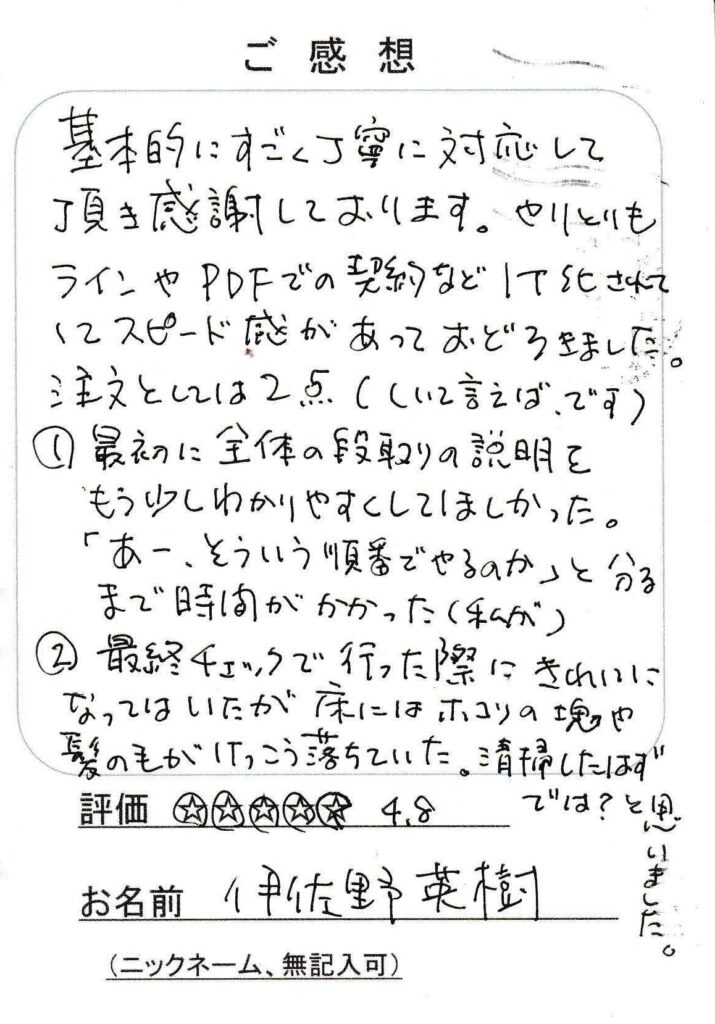 ご感想
基本的にすごく丁寧に対応して
頂き感謝しております。やりとりも
ラインやPDFでの契約などIT化されて
いてスピード感があっておどろきました。
注文としては2点（しいて言えば、です）
① 最初に全体の段取りの説明を
もう少しわかりやすくしてほしかった。
「あー、そういう順番でやるのか」と分る
まで時間がかかった（私が）
② 最終チェックで行った際にきれいに
なってはいたが床にはホコリの塊や
髪の毛がけっこう落ちていた。清掃したはず
では？と思いました。
評価 ☆☆☆☆☆ 4.8
お名前 伊佐野英樹
（ニックネーム、無記入可）